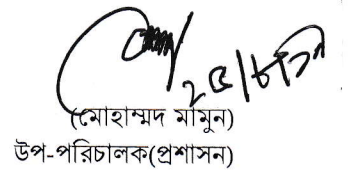 ২৫/৮/১৯
(মোহাম্মদ মামুন)
উপ-পরিচালক(প্রশাসন)